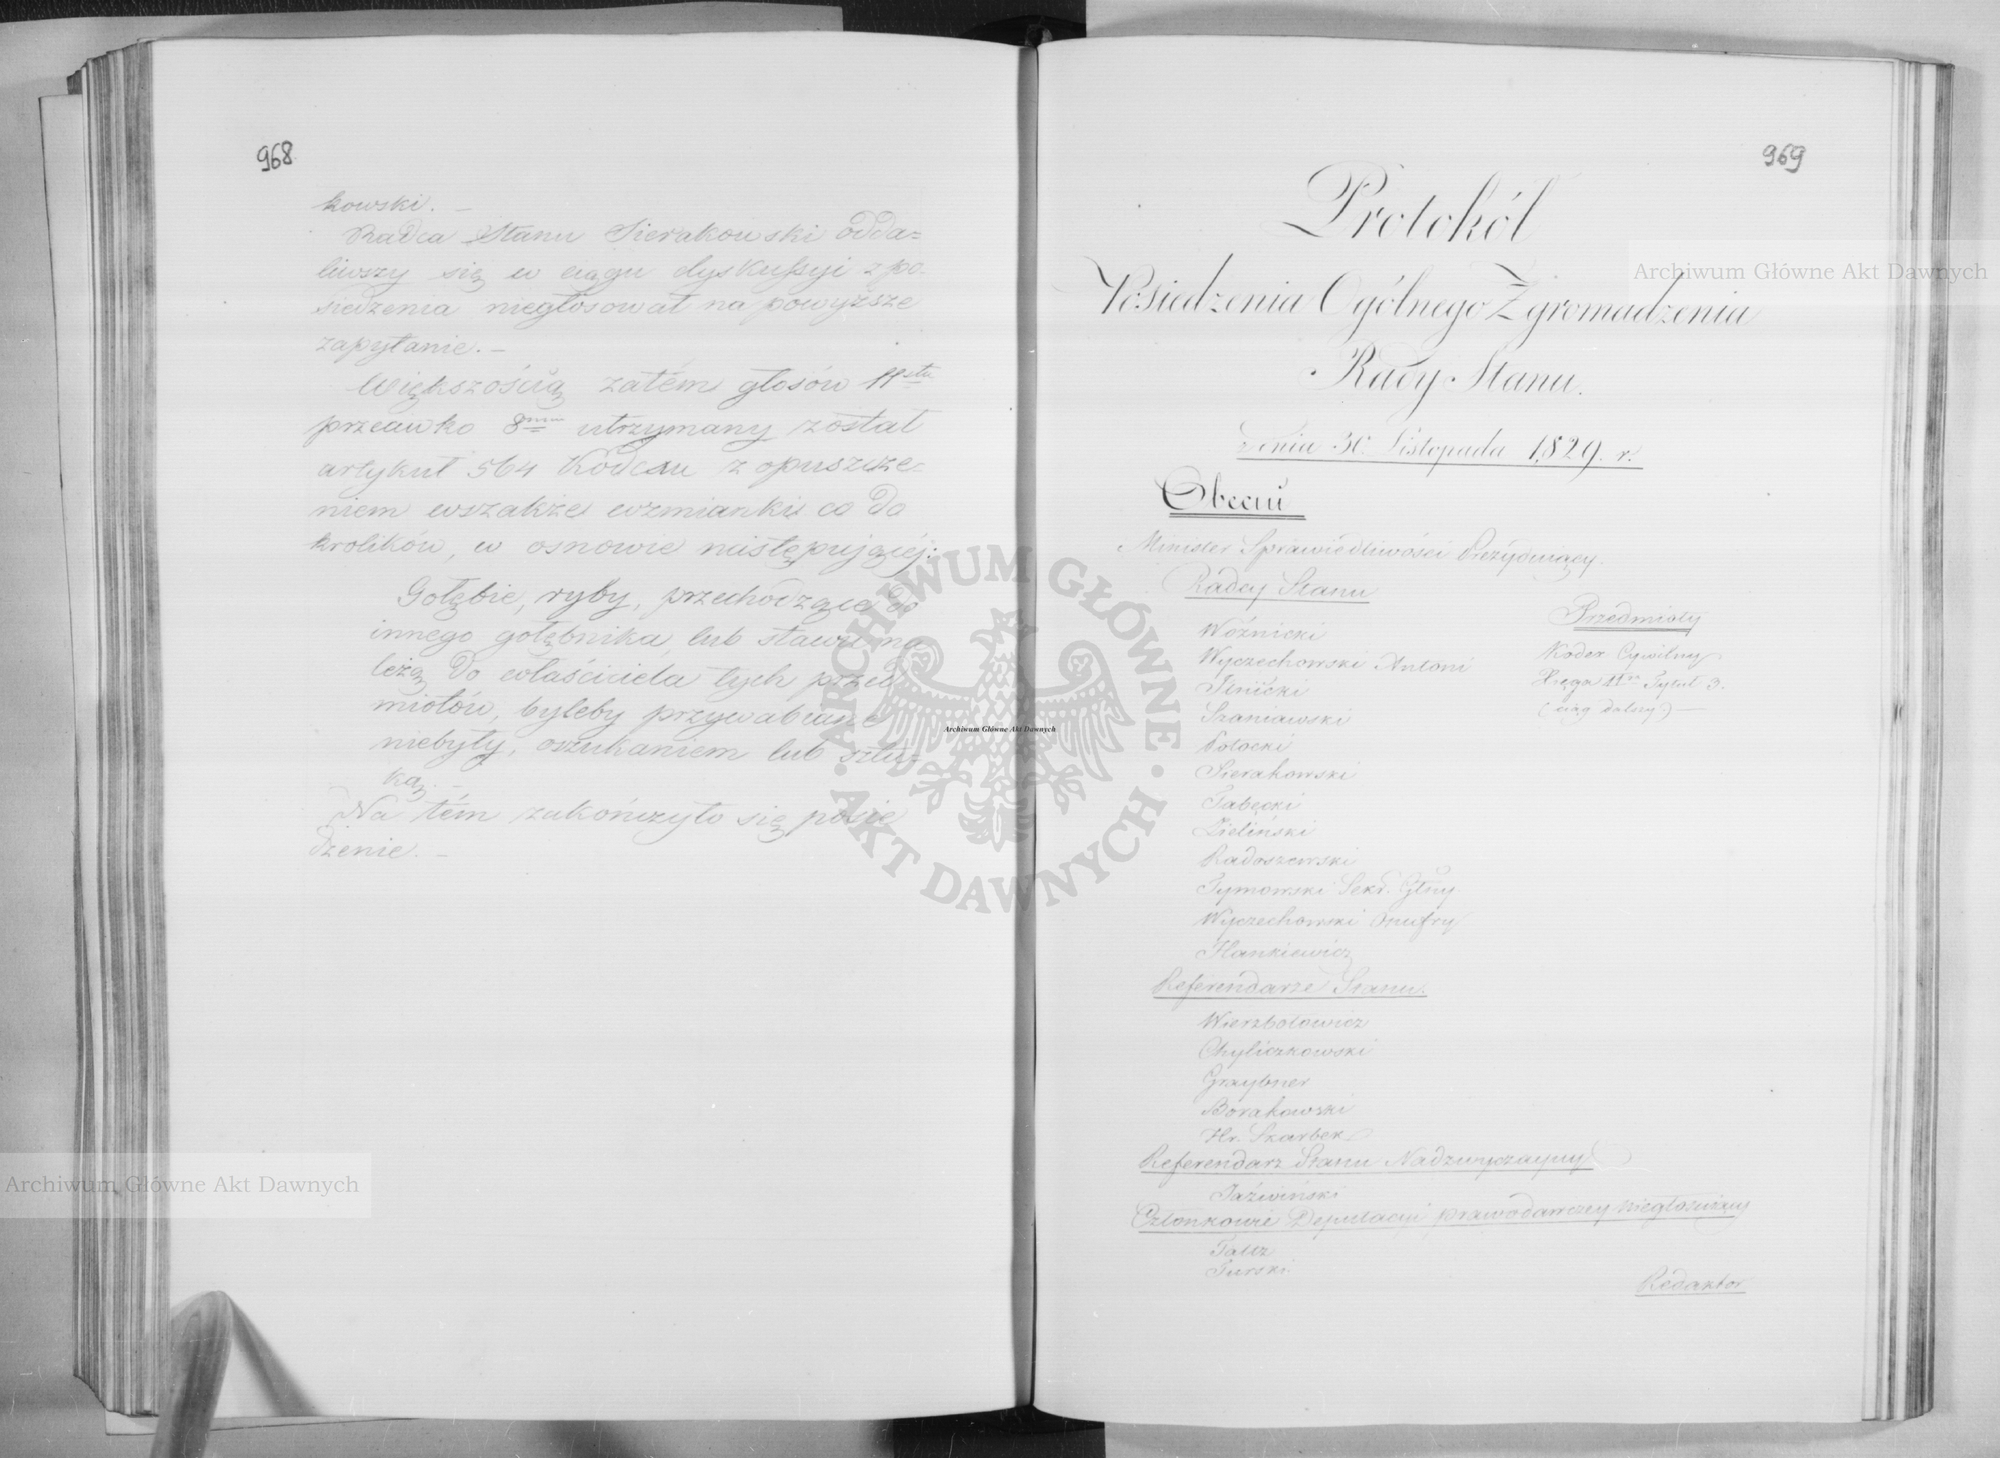 968
kowski. —
Radca Stanu Sierakowski odda=
liwszy się w ciągu dyskussyi z po-
siedzenia niegłosował na powyższe
zapytanie. —
Większością zatém głosów 11stu
przeciwko 8miu utrzymany został
artykuł 564 Kodexu z opuszcze=
niem wszakże wzmianki co do
krolików, w osnowie następującéj:
Gołębie, ryby, przechodzące do
innego gołębnika, lub stawu na
leżą do właściciela tych przed
miotów, byleby przywabione
niebyły, oszukaniem lub sztu=
ką. —
Na tém zakończyło się posie
dzenie. —
969
Protokół
Posiedzenia Ogólnego Zgromadzenia
Rady Stanu.
Dnia 30. Listopada 1829. r.
Obecni
Minister Sprawiedliwości Prezydujący.
Radcy Stanu
Woźnicki
Wyczechowski Antoni
Szaniawski
Potocki
Sierakowski
Tabęcki
Zieliński
Radoszewski
Tymowski Sekr. Głny.
Wyczechowski Onufry
Hankiewicz
Przedmioty
Kodex Cywilny
Xięga IIga Tytuł 3.
(ciąg dalszy) —
Referendarze Stanu.
Wierzbołowicz
Chyliczkowski
Graybner
Borakowski
Hr. Skarbek
Referendarz Stanu Nadzwyczayny
Jaźwiński
Członkowie Deputacyi prawodawczey niegłosujący
Turski.
Redaktor
Archiwum Główne Akt Dawnych
Archiwum Główne Akt Dawnych
Archiwum Główne Akt Dawnych
ARCHIWUM GŁÓWNE AKT DAWNYCH